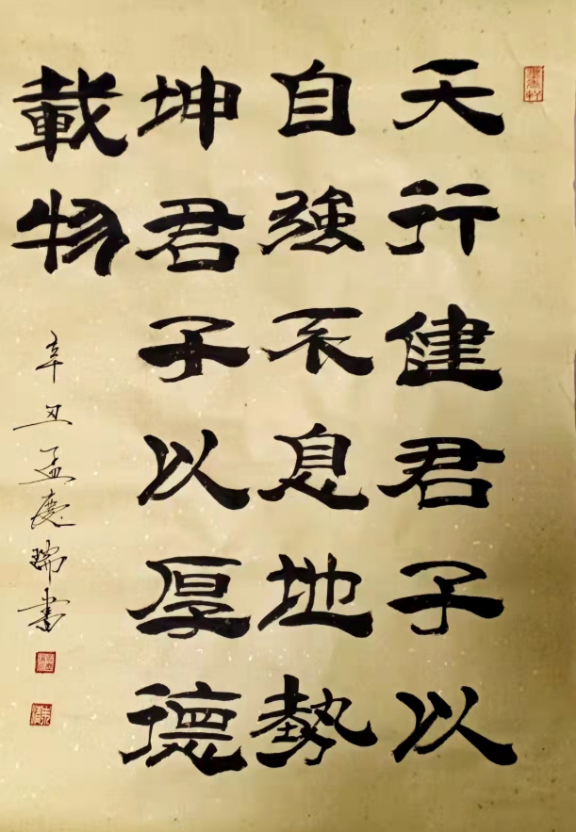 天行健君子以
自強不息地勢
坤君子以厚德
載物
辛丑孟慶瑞書